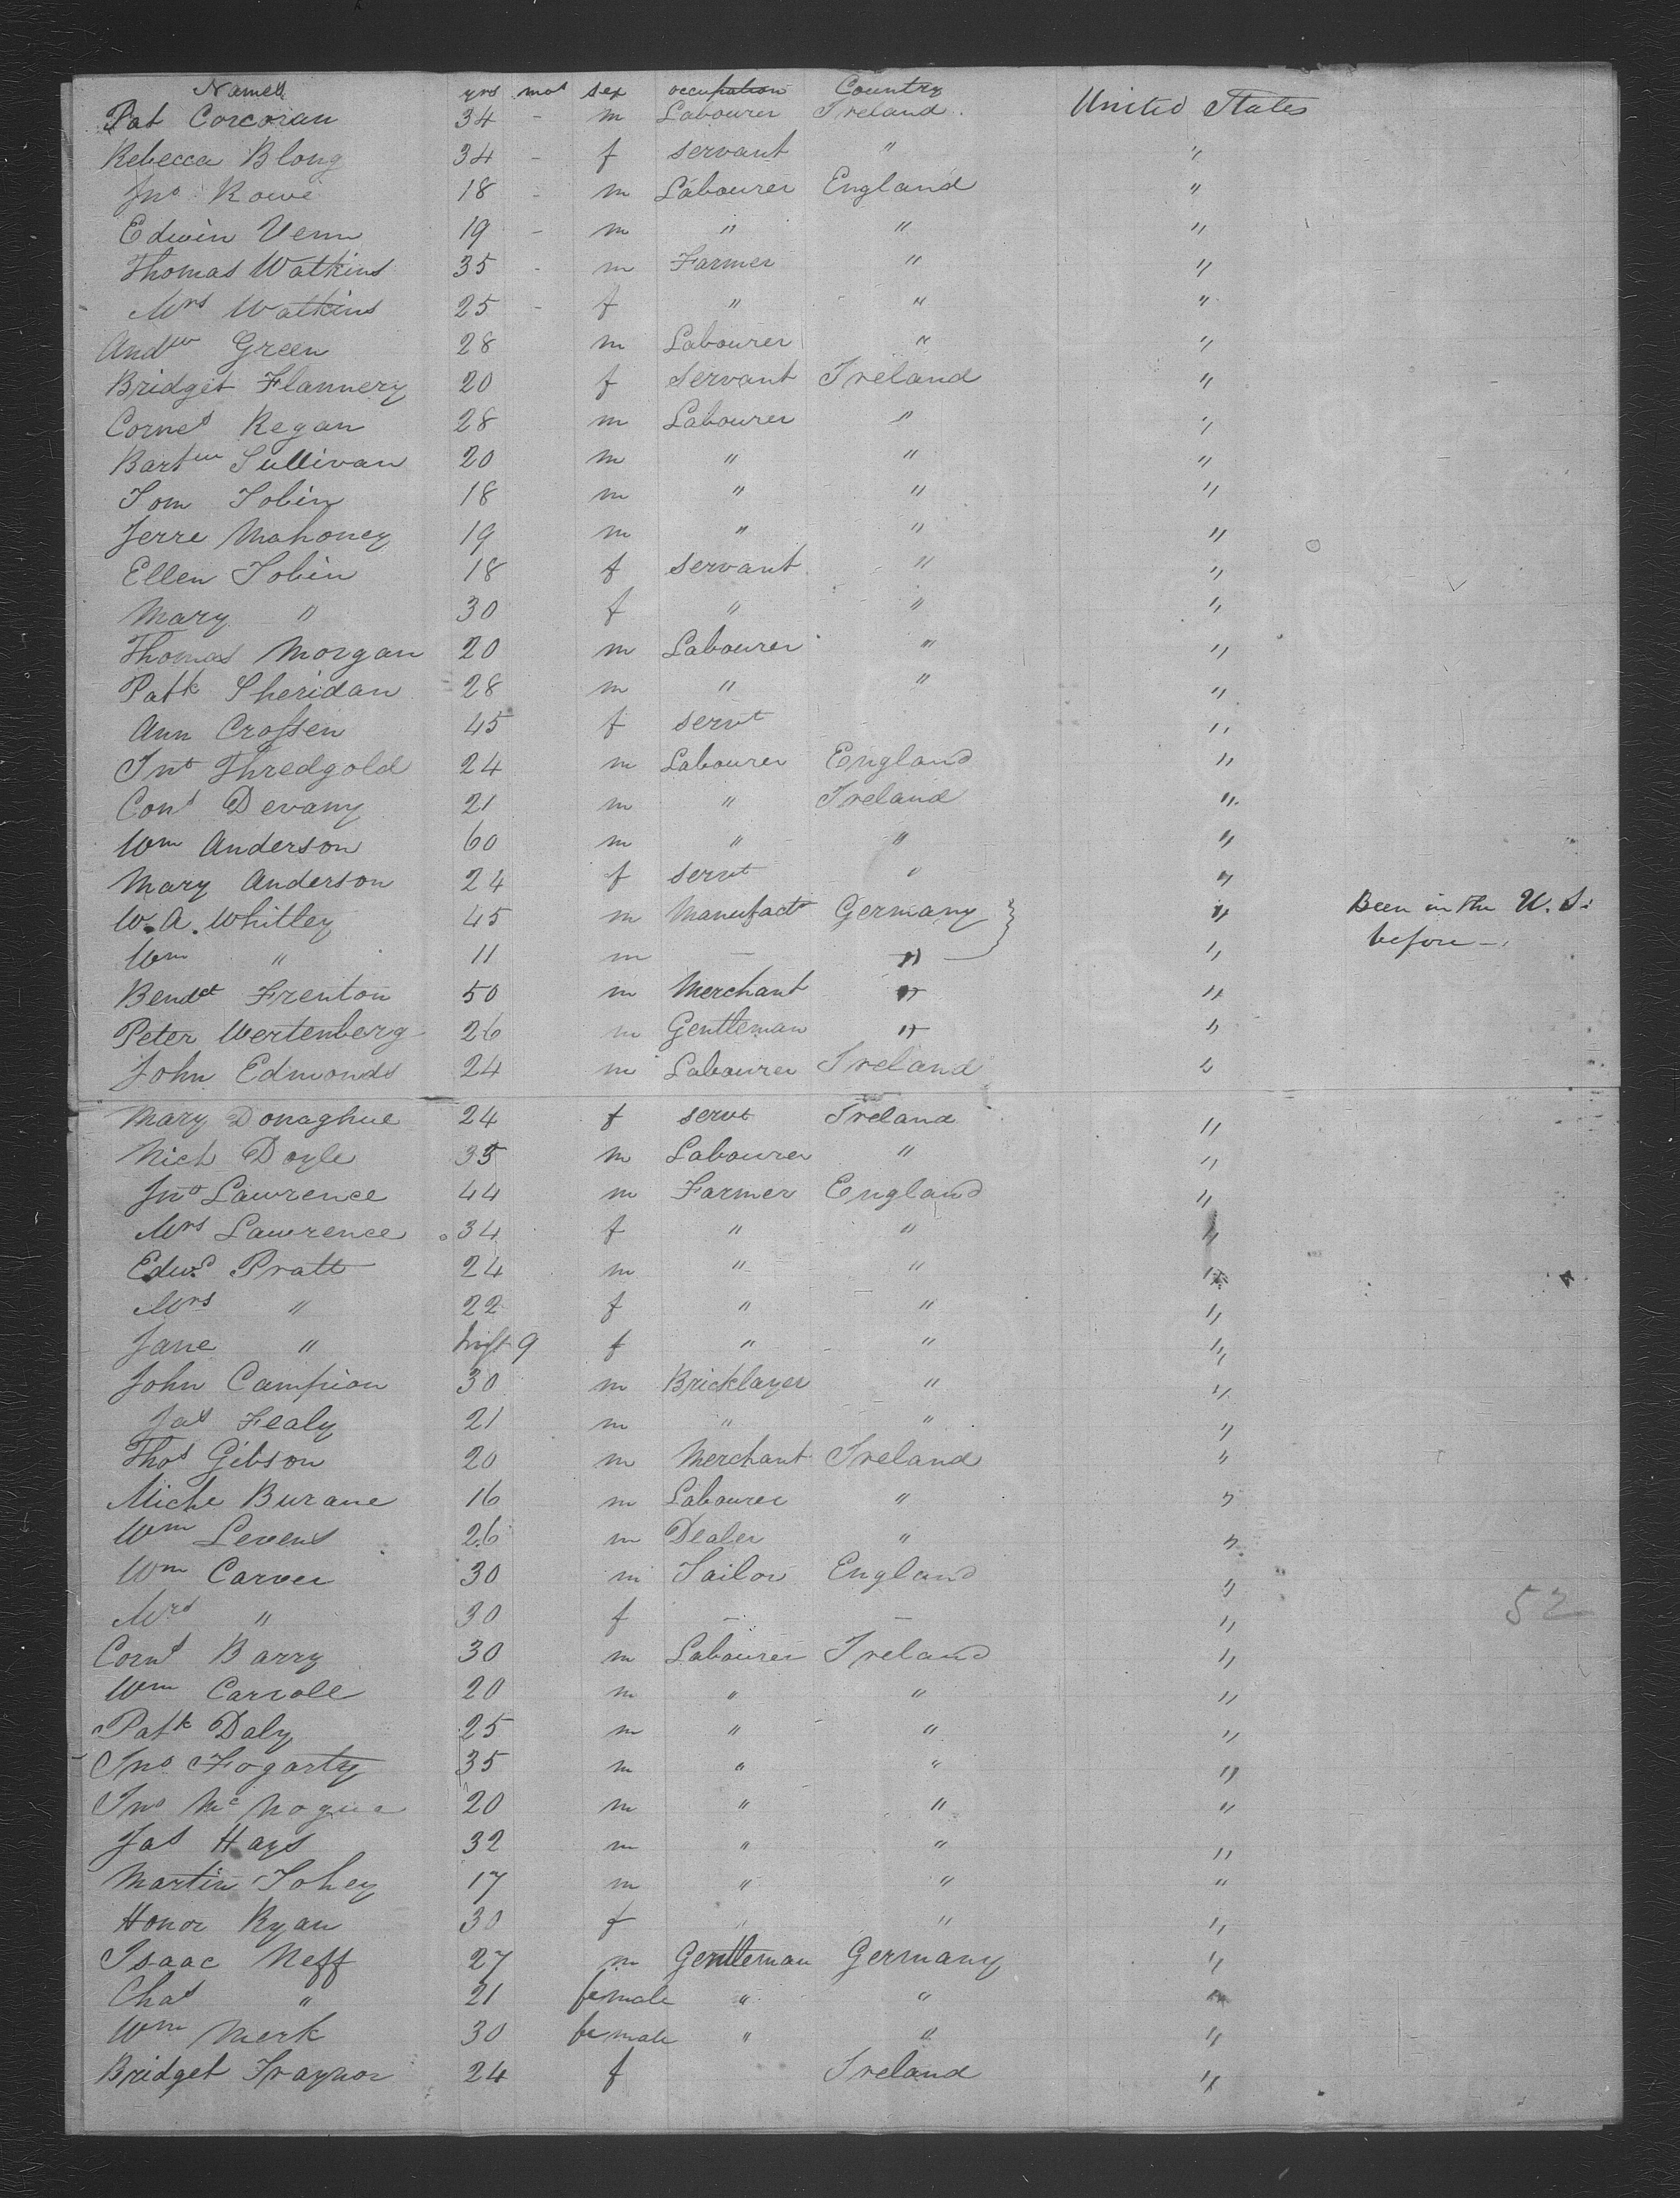 Names yrs mos sex occupation Country
Pat Corcoran 34 - m Labourer Ireland. United States
Rebecca Blong 34 - f servant " "
Jno Rowe 18 - m Labourer England "
Edwin Venn 19 - m " " "
Thomas Watkins 35 - m Farmer " "
Mrs Watkins 25 - f " " "
Andw Green 28 m Labourer " "
Bridget Flannery 20 f Servant Ireland "
Corns Regan 28 m Labourer " "
Bartw Sullivan 20 m " " "
Tom Tobin 18 m " " "
Jerre Mahoney 19 m " " "
Ellen Tobin 18 f servant " "
Mary " 30 f " " "
Thomas Morgan 20 m Labourer " "
Patk Sheridan 28 m " " "
Ann Crossen 45 f servt "
Jno Thredgold 24 m Labourer England "
Cons Devany 21 m " Ireland "
Wm Anderson 60 m " " "
Mary Anderson 24 f servt " "
W. A. Whitley 45 m Manufactr Germany " Been in the U. S.
Wm " 11 m — " " before —
Bendct Frenton 50 m Merchant " "
Peter Wertenberg 26 m Gentleman " "
John Edmonds 24 m Labourer Ireland "
Mary Donaghue 24 f servt Ireland "
Mich Doyle 35 m Labourer " "
Jno Lawrence 44 m Farmer England "
Mrs Lawrence 34 f " " "
Edwd Pratt 24 m " " "
Mrs " 22 f " " "
Jane " inft 9 f " " "
John Campion 30 m Bricklayer " "
Jas Fealy 21 m " " "
Thos Gibson 20 m Merchant Ireland "
Miche Burane 16 m Labourer " "
Wm Levens 26 m Dealer " "
Wm Carver 30 m Tailor England "
Mrs " 30 f — — " 52
Corns Barry 30 m Labourer Ireland "
Wm Carroll 20 m " " "
Patk Daly 25 m " " "
Jno Fogarty 35 m " " "
Jno Mc 20 m " " "
Jas Hays 32 m " " "
Martin Tohey 17 m " " "
Honor Ryan 30 f " " "
Isaac Neff 27 m Gentleman Germany "
Chas " 21 female " " "
Wm Merk 30 female " " "
Bridget Traynor 24 f Ireland "